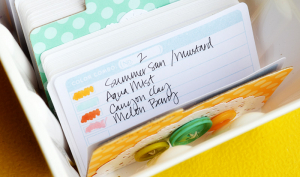 2
Summer Sun / Mustard
Aqua Mist
Canyon Clay
Melon Berry